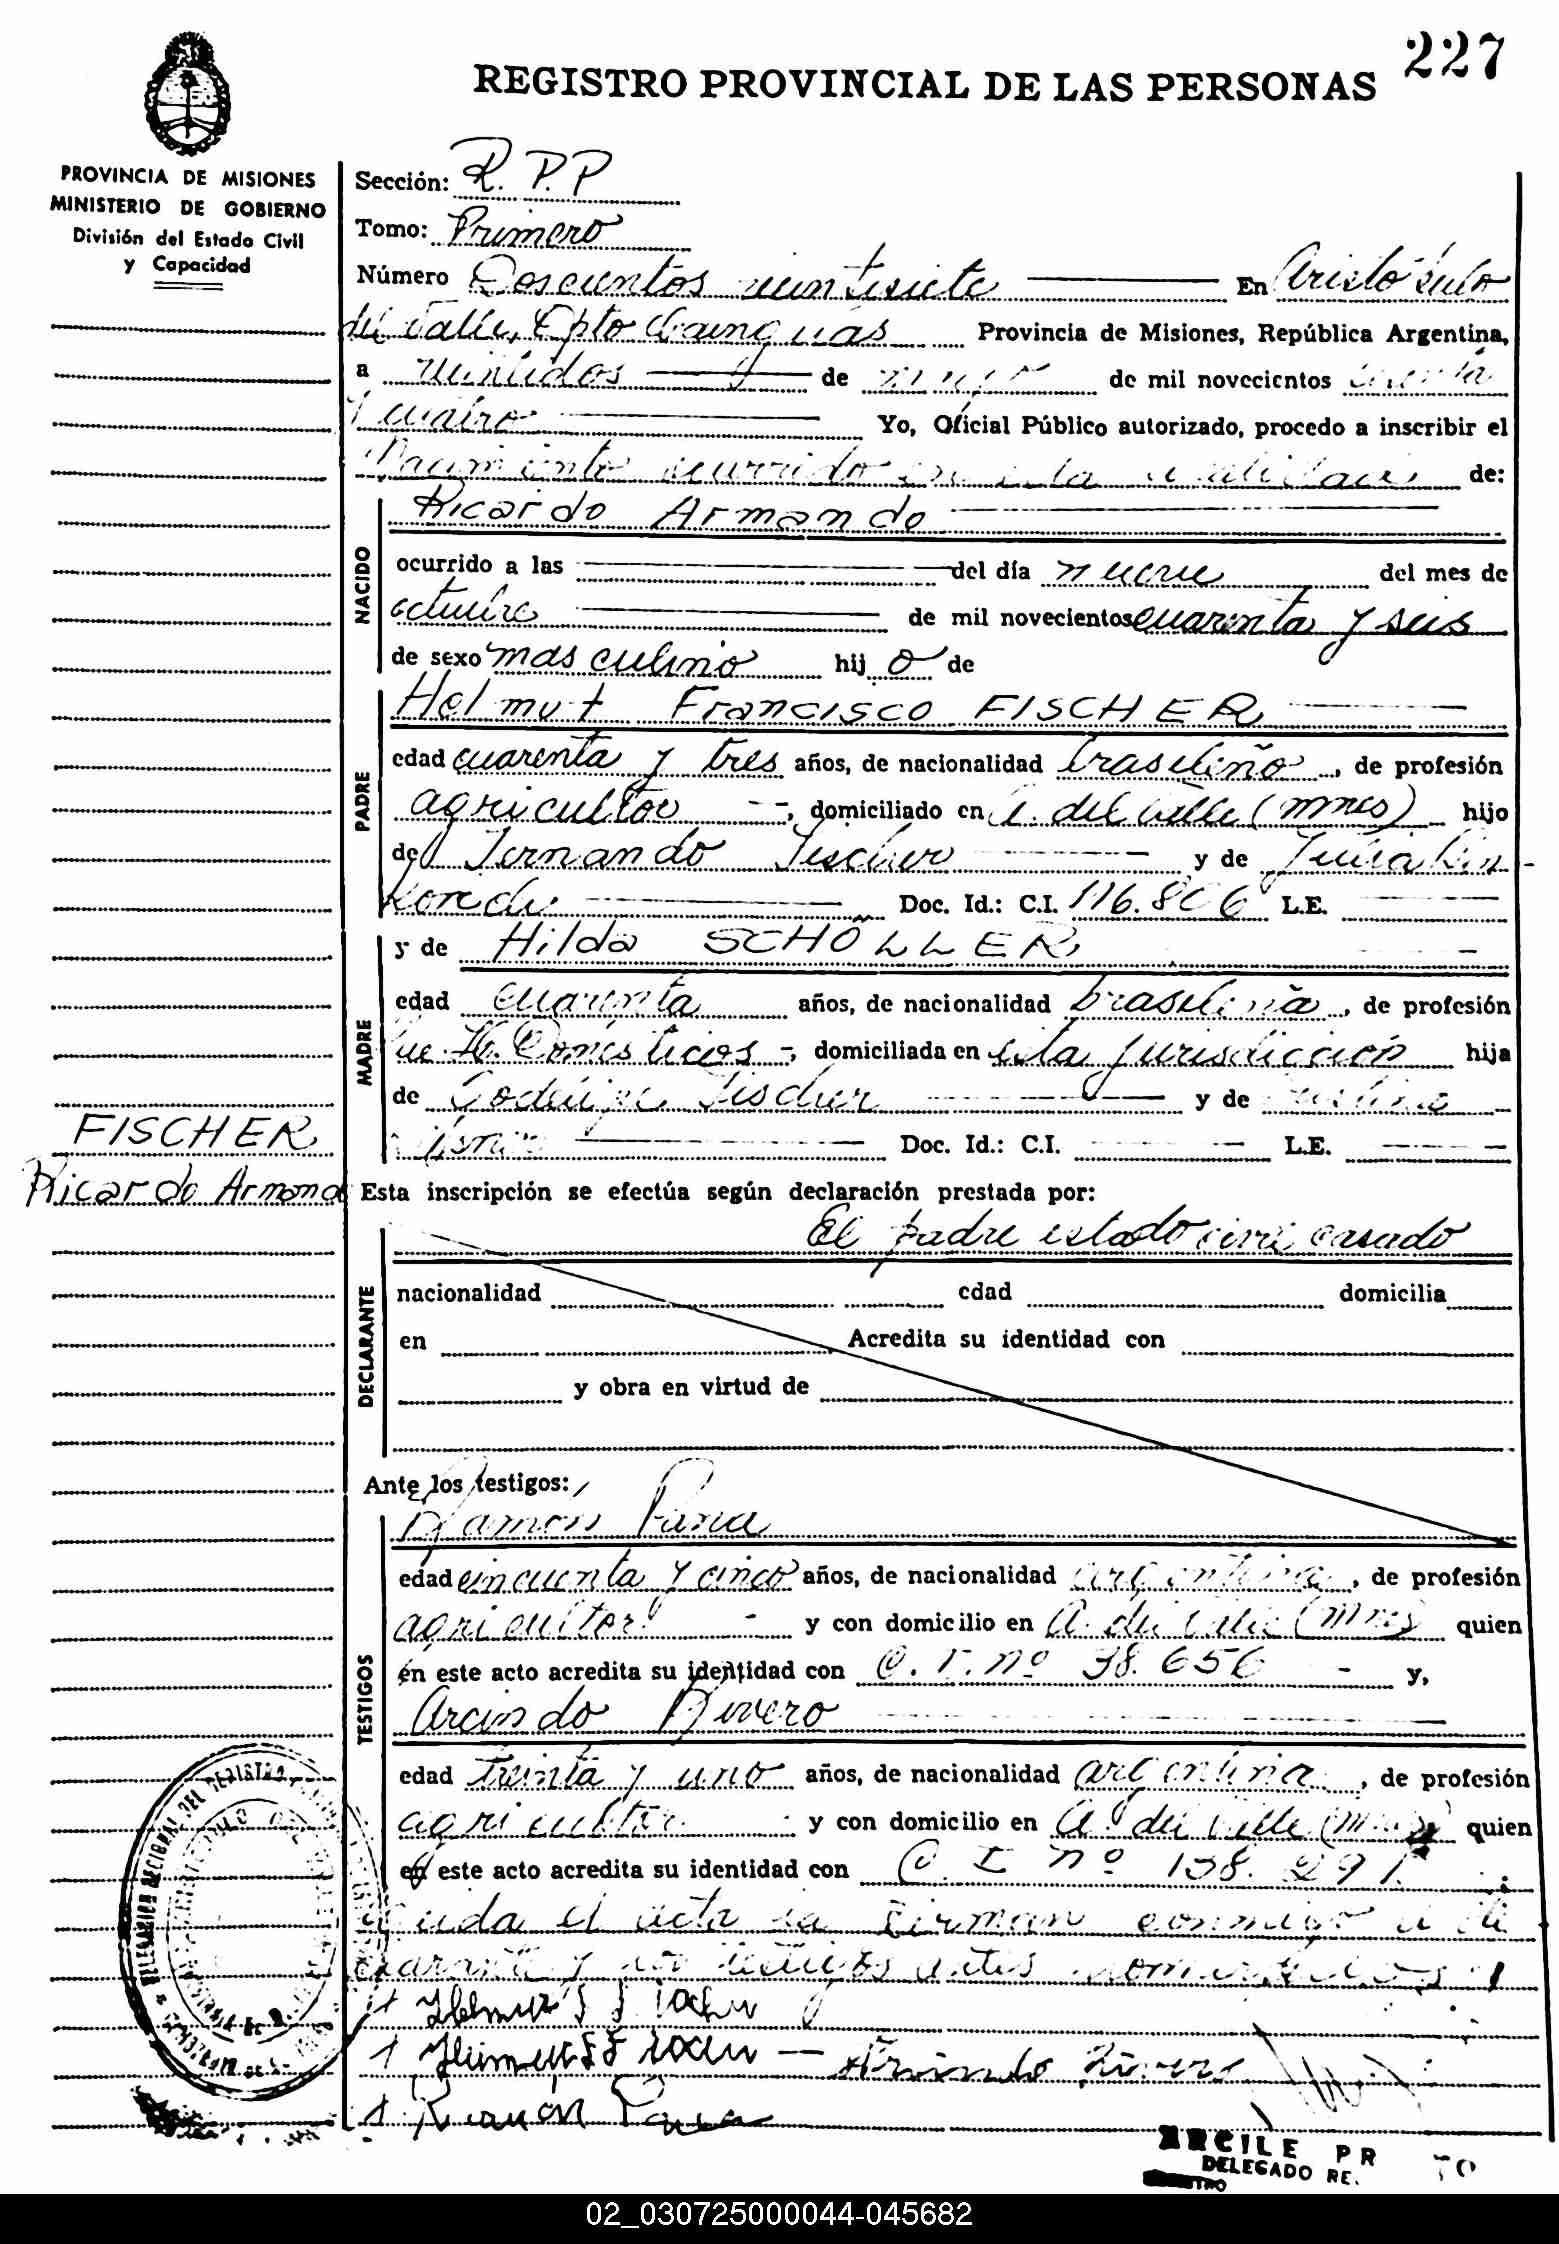 227
REGISTRO PROVINCIAL DE LAS PERSONAS
PROVINCIA DE MISIONES
MINISTERIO DE GOBIERNO
División del Estado Civil
y Capacidad
Sección: R. P. P
Tomo: Primero
Número Doscientos veintisiete En Aristóbulo
del Valle, Dpto Cainguás Provincia de Misiones, República Argentina,
a veintidos de mayo de mil novecientos
y cuatro Yo, Oficial Público autorizado, procedo a inscribir el
Nacimiento ocurrido en esta de:
NACIDO
Ricardo Armando
ocurrido a las del día nueve del mes de
octubre de mil novecientos cuarenta y seis
de sexo masculino hijo de
PADRE
Helmut Francisco FISCHER
edad cuarenta y tres años, de nacionalidad brasileño, de profesión
agricultor -, domiciliado en A. del Valle (Mnes) hijo
de Fernando Fischer y de
Doc. Id.: C.I. 116.806 L.E.
MADRE
y de Hilda SCHÖLLER
edad cuarenta años, de nacionalidad brasileña, de profesión
Que H. Domésticos -, domiciliada en esta jurisdicción hija
de Fischer y de
Doc. Id.: C.I. L.E.
FISCHER
Ricardo Armando
Esta inscripción se efectúa según declaración prestada por:
DECLARANTE
El padre estado civil casado
nacionalidad edad domicilia
en Acredita su identidad con
y obra en virtud de
Ante los testigos:
TESTIGOS
Ramón
edad cincuenta y cinco años, de nacionalidad argentina, de profesión
agricultor - y con domicilio en A. del Valle (Mnes) quien
en este acto acredita su identidad con C. I. nº 38.656 - y,
Arcindo Rivero
edad treinta y uno años, de nacionalidad argentina, de profesión
agricultor - y con domicilio en A. del Valle (Mnes) quien
en este acto acredita su identidad con C. I nº 138.291
el acta la firman conmigo el de
clarante y los testigos antes nombrados
Ramón
DELEGADO RE.
02_030725000044-045682